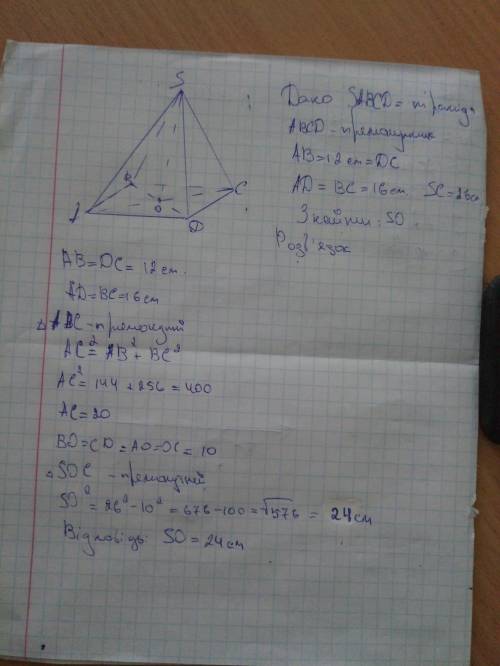 S
Дано SABCD = піраміда
ABCD - прямокутник
AB = 12 см = DC
AD = BC = 16 см. SC = 26 см
Знайти: SO.
Розв'язок
B
C
O
A
D
AB = DC = 12 см.
AD = BC = 16 см
△ ABC - прямокутний
AC² = AB² + BC²
AC² = 144 + 256 = 400
AC = 20
BO = OD = AO = OC = 10
△ SOC - прямокутний
SO² = 26² - 10² = 676 - 100 = √576 = 24 см
Відповідь: SO = 24 см